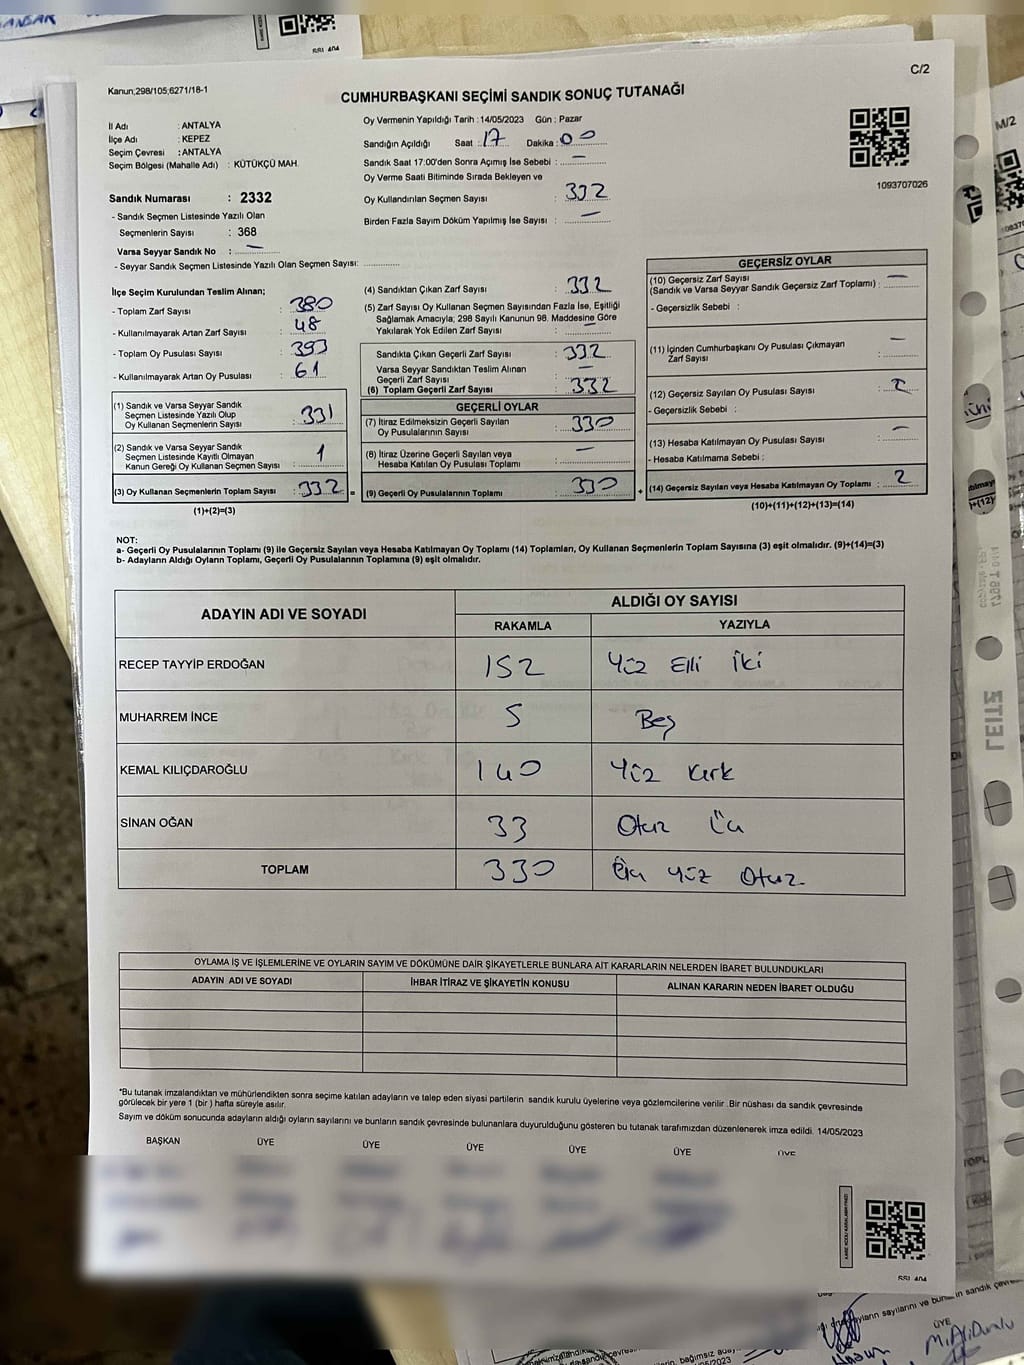 C/2
Kanun;298/105;6271/18-1
CUMHURBAŞKANI SEÇİMİ SANDIK SONUÇ TUTANAĞI
İl Adı : ANTALYA
İlçe Adı : KEPEZ
Seçim Çevresi : ANTALYA
Seçim Bölgesi (Mahalle Adı) : KÜTÜKÇÜ MAH.
Sandık Numarası : 2332
- Sandık Seçmen Listesinde Yazılı Olan
Seçmenlerin Sayısı : 368
Varsa Seyyar Sandık No : —
- Seyyar Sandık Seçmen Listesinde Yazılı Olan Seçmen Sayısı: ............
Oy Vermenin Yapıldığı Tarih : 14/05/2023 Gün : Pazar
Sandığın Açıldığı Saat : 17 Dakika : 00
Sandık Saat 17:00'den Sonra Açımış İse Sebebi : —
Oy Verme Saati Bitiminde Sırada Bekleyen ve
Oy Kullandırılan Seçmen Sayısı : 332
Birden Fazla Sayım Döküm Yapılmış İse Sayısı : —
1093707026
İlçe Seçim Kurulundan Teslim Alınan;
- Toplam Zarf Sayısı : 380
- Kullanılmayarak Artan Zarf Sayısı : 48
- Toplam Oy Pusulası Sayısı : 393
- Kullanılmayarak Artan Oy Pusulası : 61
(1) Sandık ve Varsa Seyyar Sandık
Seçmen Listesinde Yazılı Olup
Oy Kullanan Seçmenlerin Sayısı : 331
(2) Sandık ve Varsa Seyyar Sandık
Seçmen Listesinde Kayıtlı Olmayan
Kanun Gereği Oy Kullanan Seçmen Sayısı : 1
(3) Oy Kullanan Seçmenlerin Toplam Sayısı : 332 =
(1)+(2)=(3)
(4) Sandıktan Çıkan Zarf Sayısı : 332
(5) Zarf Sayısı Oy Kullanan Seçmen Sayısından Fazla İse, Eşitliği
Sağlamak Amacıyla; 298 Sayılı Kanunun 98. Maddesine Göre
Yakılarak Yok Edilen Zarf Sayısı : —
Sandıkta Çıkan Geçerli Zarf Sayısı : 332
Varsa Seyyar Sandıktan Teslim Alınan
Geçerli Zarf Sayısı : —
(6) Toplam Geçerli Zarf Sayısı : 332
GEÇERLİ OYLAR
(7) İtiraz Edilmeksizin Geçerli Sayılan
Oy Pusulalarının Sayısı : 330
(8) İtiraz Üzerine Geçerli Sayılan veya
Hesaba Katılan Oy Pusulası Toplamı : —
(9) Geçerli Oy Pusulalarının Toplamı : 330 +
GEÇERSİZ OYLAR
(10) Geçersiz Zarf Sayısı
(Sandık ve Varsa Seyyar Sandık Geçersiz Zarf Toplamı) : —
- Geçersizlik Sebebi :
(11) İçinden Cumhurbaşkanı Oy Pusulası Çıkmayan
Zarf Sayısı : —
(12) Geçersiz Sayılan Oy Pusulası Sayısı : 2
- Geçersizlik Sebebi :
(13) Hesaba Katılmayan Oy Pusulası Sayısı : —
- Hesaba Katılmama Sebebi :
(14) Geçersiz Sayılan veya Hesaba Katılmayan Oy Toplamı : 2
(10)+(11)+(12)+(13)=(14)
NOT:
a- Geçerli Oy Pusulalarının Toplamı (9) ile Geçersiz Sayılan veya Hesaba Katılmayan Oy Toplamı (14) Toplamları, Oy Kullanan Seçmenlerin Toplam Sayısına (3) eşit olmalıdır. (9)+(14)=(3)
b- Adayların Aldığı Oyların Toplamı, Geçerli Oy Pusulalarının Toplamına (9) eşit olmalıdır.
ADAYIN ADI VE SOYADI ALDIĞI OY SAYISI
RAKAMLA YAZIYLA
RECEP TAYYİP ERDOĞAN 152 Yüz Elli İki
MUHARREM İNCE 5 Beş
KEMAL KILIÇDAROĞLU 140 Yüz Kırk
SİNAN OĞAN 33 Otuz Üç
TOPLAM 330 Üç Yüz Otuz
OYLAMA İŞ VE İŞLEMLERİNE VE OYLARIN SAYIM VE DÖKÜMÜNE DAİR ŞİKAYETLERLE BUNLARA AİT KARARLARIN NELERDEN İBARET BULUNDUKLARI
ADAYIN ADI VE SOYADI İHBAR İTİRAZ VE ŞİKAYETİN KONUSU ALINAN KARARIN NEDEN İBARET OLDUĞU
*Bu tutanak imzalandıktan ve mühürlendikten sonra seçime katılan adayların ve talep eden siyasi partilerin sandık kurulu üyelerine veya gözlemcilerine verilir. Bir nüshası da sandık çevresinde
görülecek bir yere 1 (bir) hafta süreyle asılır.
Sayım ve döküm sonucunda adayların aldığı oyların sayılarını ve bunların sandık çevresinde bulunanlara duyurulduğunu gösteren bu tutanak tarafımızdan düzenlenerek imza edildi. 14/05/2023
BAŞKAN ÜYE ÜYE ÜYE ÜYE ÜYE ÜYE
LEITZ
M/2
ÜYE